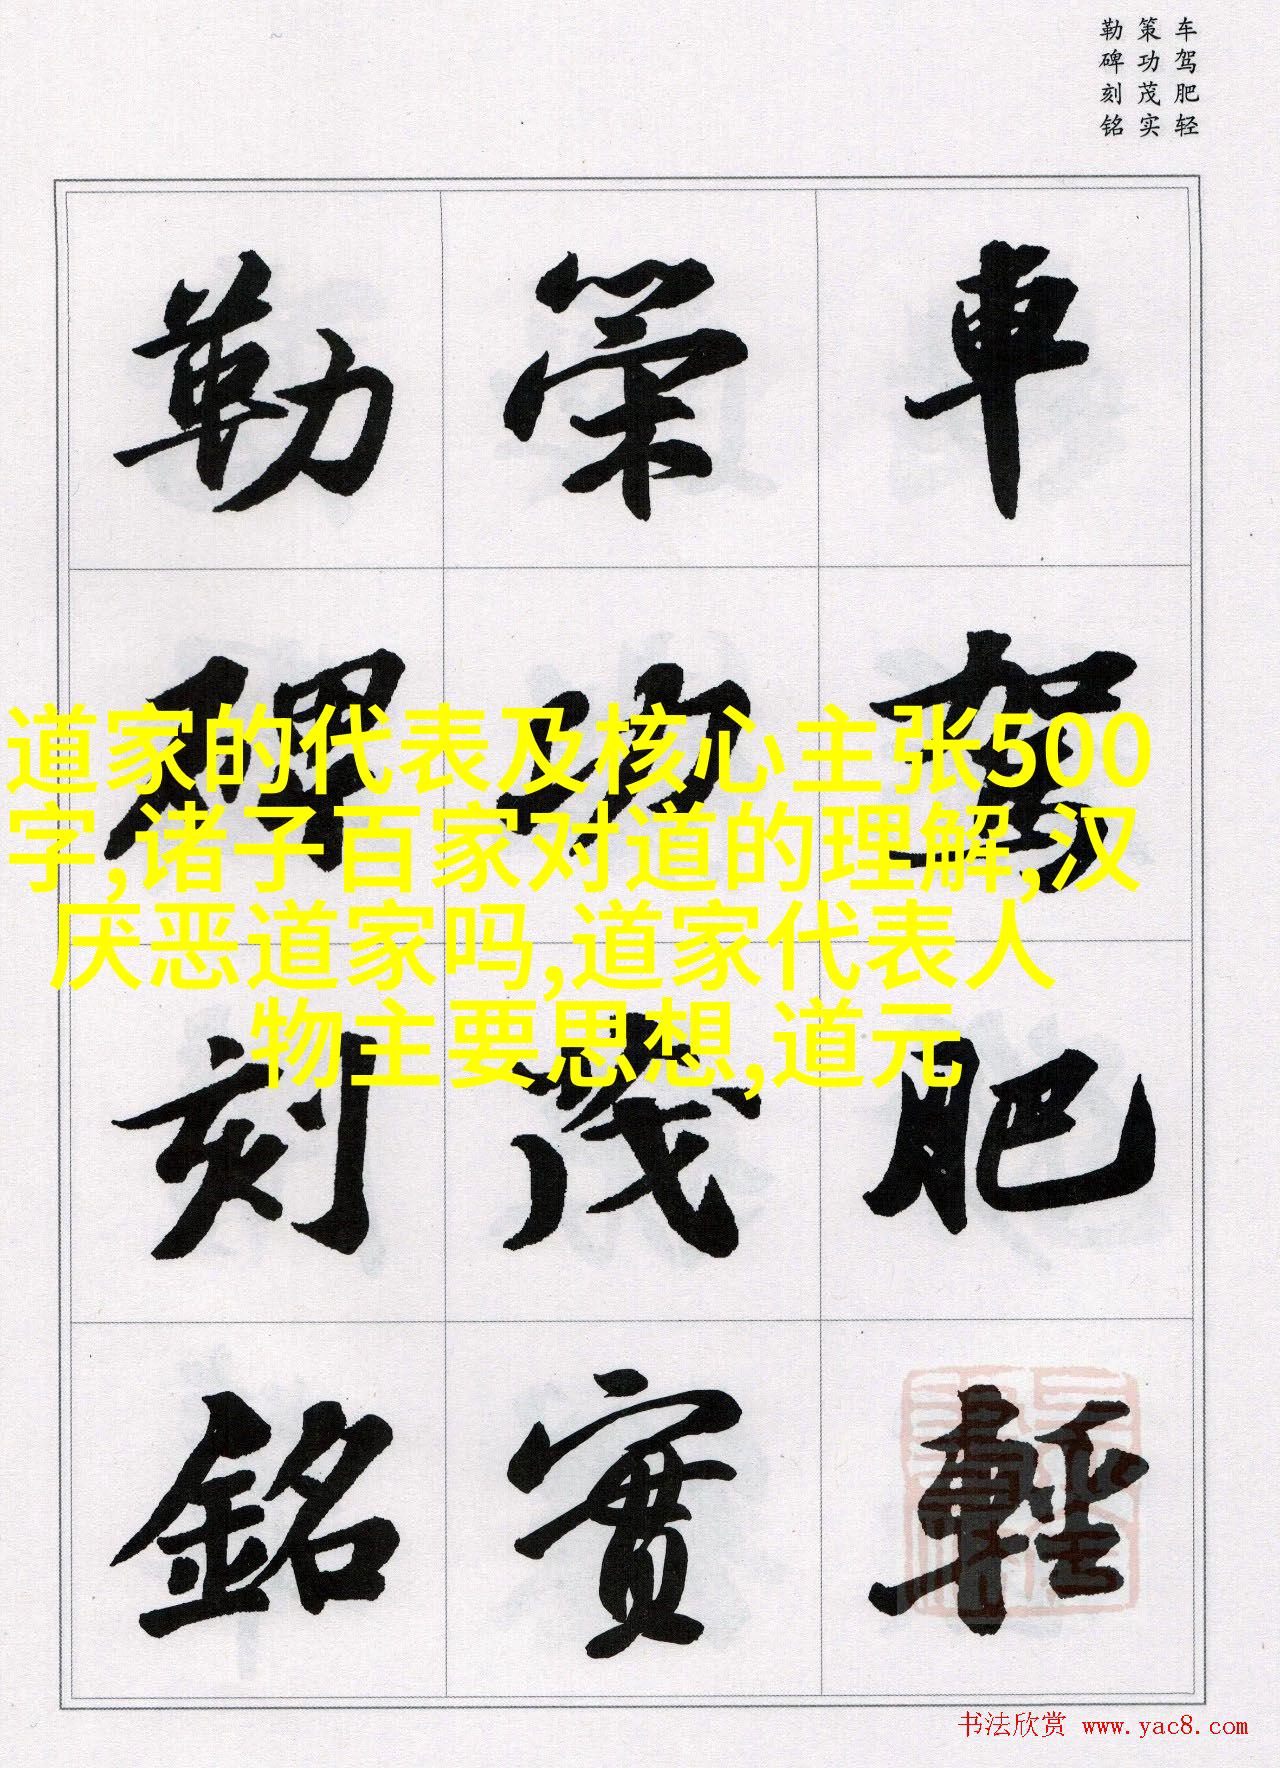 车驾肥轻
策功茂实
勒碑刻铭
車駕肥輕
策功茂實
勒碑刻銘
道家的代表及核心主张500
字,诸子百家对道的理解,汉
厌恶道家吗,道家代表人
物主要思想,道元
书法欣赏 www.yac8.com